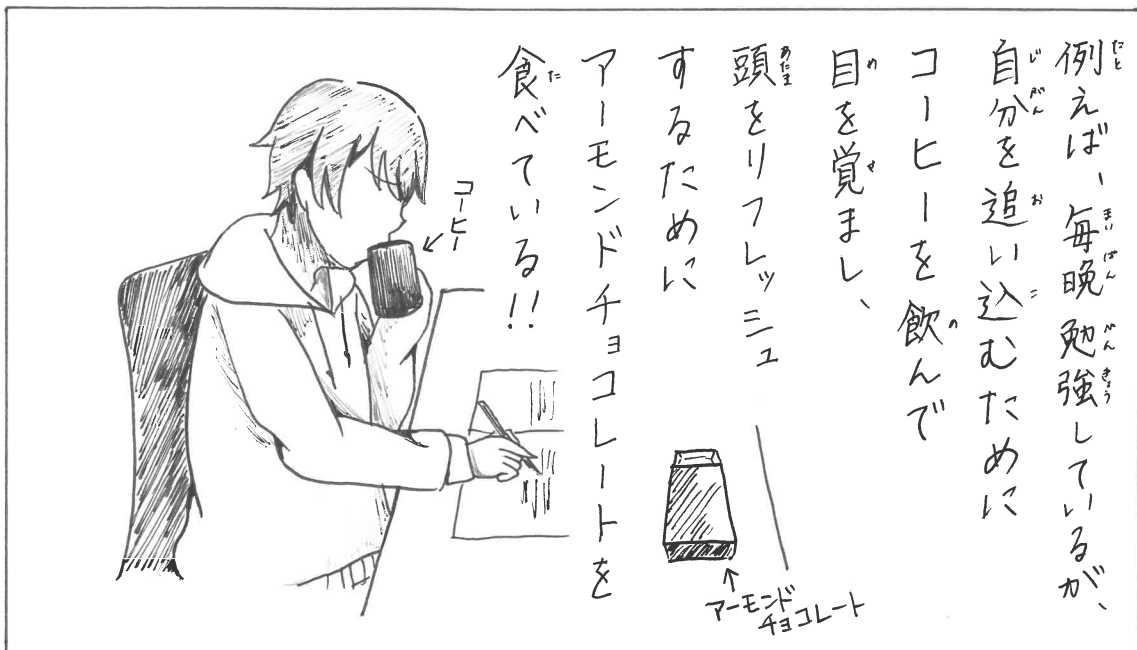 例えば、毎晩勉強しているが、
自分を追い込むために
コーヒーを飲んで
目を覚まし、
頭をリフレッシュ
するために
アーモンドチョコレートを
食べている!!
コーヒー
アーモンド
チョコレート